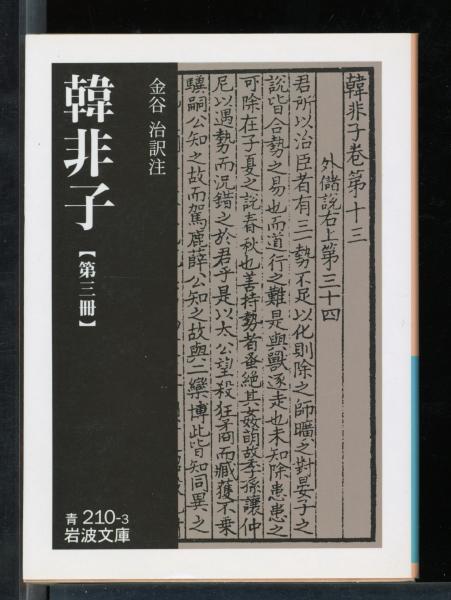 韓非子
【第三冊】
金谷 治訳注
青 210-3
岩波文庫
韓非子卷第十三
外儲説右上第三十四
君所以治臣者有三勢不足以化則除之師曠之對晏子之
説皆合勢之易也而道行之難是與獸逐走也未知除患患之
可除在子夏之説春秋也善持勢者蚤絶其姦萌故季孫讓仲
尼以遇勢而況錯之於君乎是以太公望殺狂矞而臧獲不乗
驥嗣公知之故而駕鹿薛公知之故與二欒博此皆知同異之